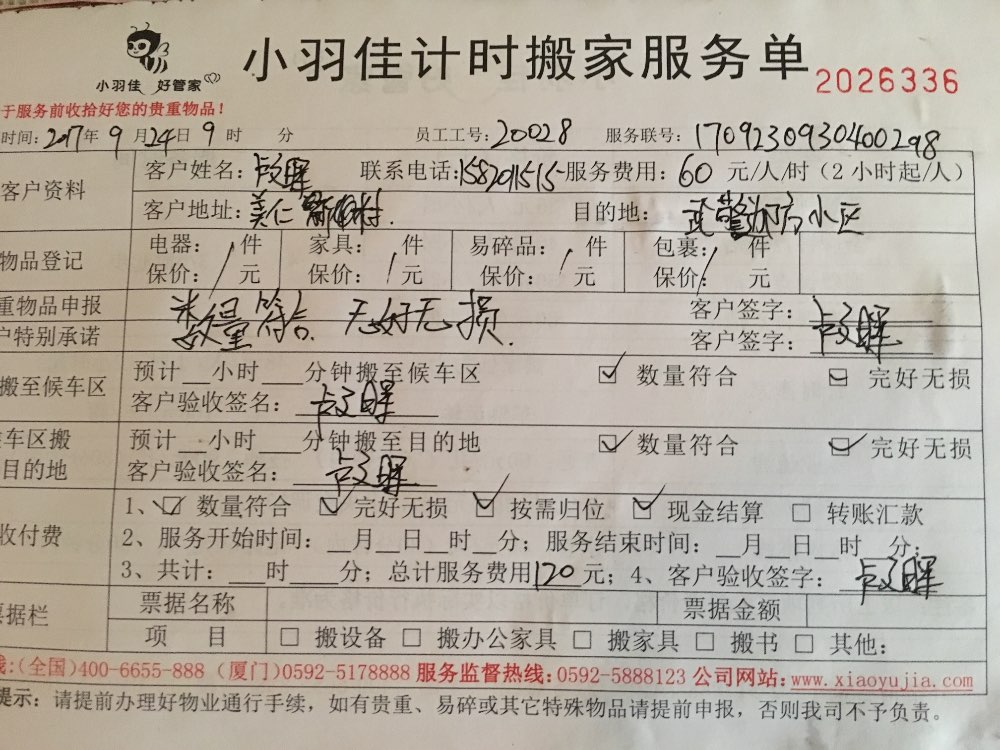 小羽佳 好管家
小羽佳计时搬家服务单
2026336
于服务前收拾好您的贵重物品!
时间: 2017年 9月 24日 9时 分 员工工号: 20028 服务联号: 17092309304000298
客户资料
客户姓名: 联系电话: 服务费用: 60 元/人/时(2小时起/人)
客户地址: 美仁 目的地: 武警 小区
物品登记
电器: / 件 家具: / 件 易碎品: / 件 包裹: / 件
保价: 元 保价: 元 保价: 元 保价: 元
重物品申报 数量符合 完好无损. 客户签字:
户特别承诺 客户签字:
搬至候车区
预计__小时___分钟搬至候车区 ☑ 数量符合 ☑ 完好无损
客户验收签名:
车区搬
目的地
预计__小时___分钟搬至目的地 ☑ 数量符合 ☑ 完好无损
客户验收签名:
收付费
1、☑ 数量符合 ☑ 完好无损 ☑ 按需归位 ☑ 现金结算 □ 转账汇款
2、服务开始时间:__月__日__时__分;服务结束时间:__月__日__时__分;
3、共计:___时____分;总计服务费用120元;4、客户验收签字:
票据栏
票据名称 票据金额
项 目 □ 搬设备 □ 搬办公家具 □ 搬家具 □ 搬书 □ 其他:
线:(全国)400-6655-888 (厦门)0592-5178888 服务监督热线:0592-5888123 公司网站:www.xiaoyujia.com
提示:请提前办理好物业通行手续,如有贵重、易碎或其它特殊物品请提前申报,否则我司不予负责。